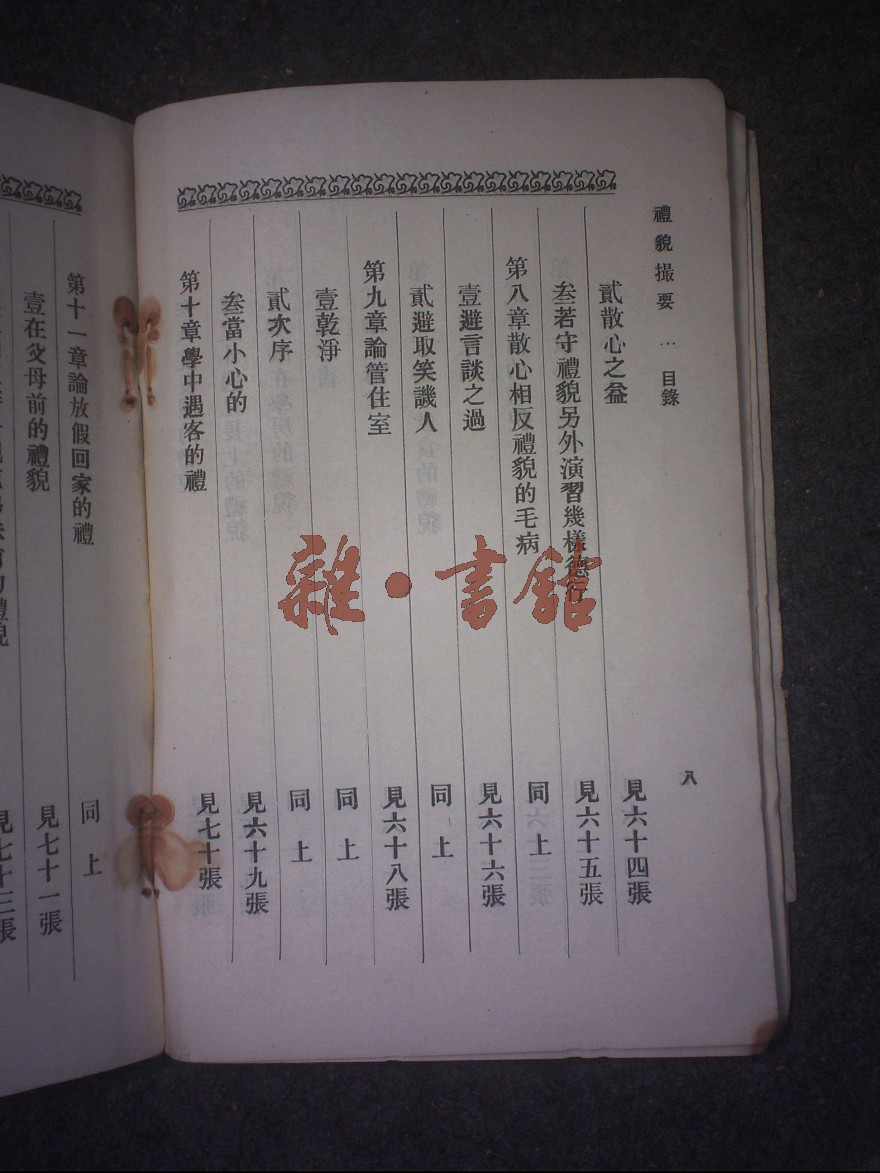 禮貌撮要 目錄 八
貳散心之益 見六十四張
叁若守禮貌另外演習幾樣德行 見六十五張
第八章散心相反禮貌的毛病 同上
壹避言談之過 見六十六張
貳避取笑譏人 同上
第九章論管住室 見六十八張
壹乾淨 同上
貳次序 同上
叁當小心的 見六十九張
第十章學中遇客的禮 見七十張
第十一章論放假回家的禮 同上
壹在父母前的禮貌 見七十一張
禮貌 見七十三張
雜·書館